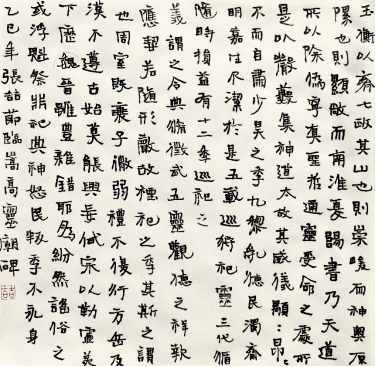 玉衡以齊七政其山也則崇峻而神興原
隰也則顯敞而南淮賜書乃天道
所以除偽寧真並通靈受命之處所
是以嚴藪集神道太故其威儀顯=昂=
不而自肅少昊之季九黎乱德民瀆齊
明嘉生不潔於是五載巡狩祀靈三代循
隨時損益有十二年巡祀之
義謂之令典脩徵武五靈觀德之祥報
應契若隨形故禋祀之季其斯之謂
也周室既衰子微弱禮不復行方岳及
漢不遵古始莫能興長代宗以勤靈美
下歷魏晉雖豐雜錯耶多紛然謠俗之
或浮魁祭非祀典神怒民叛季不永身
乙巳年張喆節臨嵩高靈廟碑